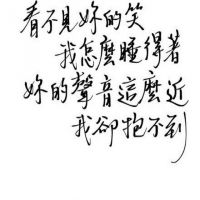 看不見妳的笑
我怎麼睡得著
妳的聲音這麼近
我卻抱不到